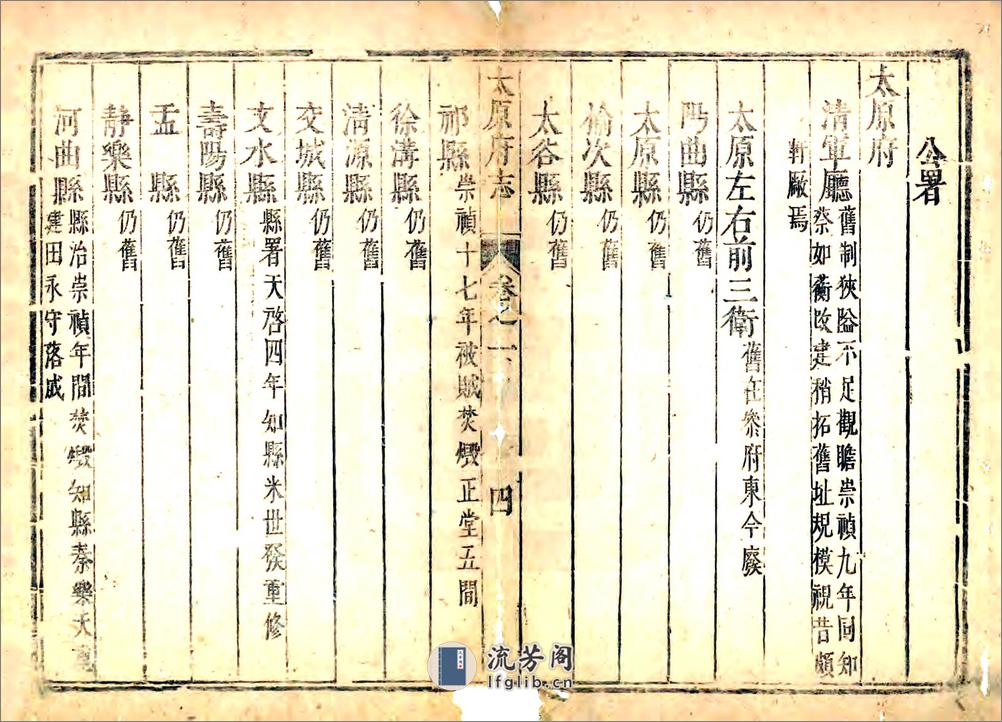 公署
太原府
清軍廳舊制狹隘不足觀瞻崇禎九年同知
蔡如蘅改建稍拓舊址規模視昔頗
軒厰焉
太原左右前三衛舊在察府東今廢
陽曲縣仍舊
太原縣仍舊
榆次縣仍舊
太谷縣仍舊
太原府志 卷之一 四
祁縣崇禎十七年被賊焚燬正堂五間
徐溝縣仍舊
清源縣仍舊
交城縣仍舊
文水縣縣署天啓四年知縣米世發重修
壽陽縣仍舊
盂縣仍舊
靜樂縣仍舊
河曲縣縣治崇禎年間焚燬知縣秦樂天
建田永守落成
流芳阁
lfglib.cn